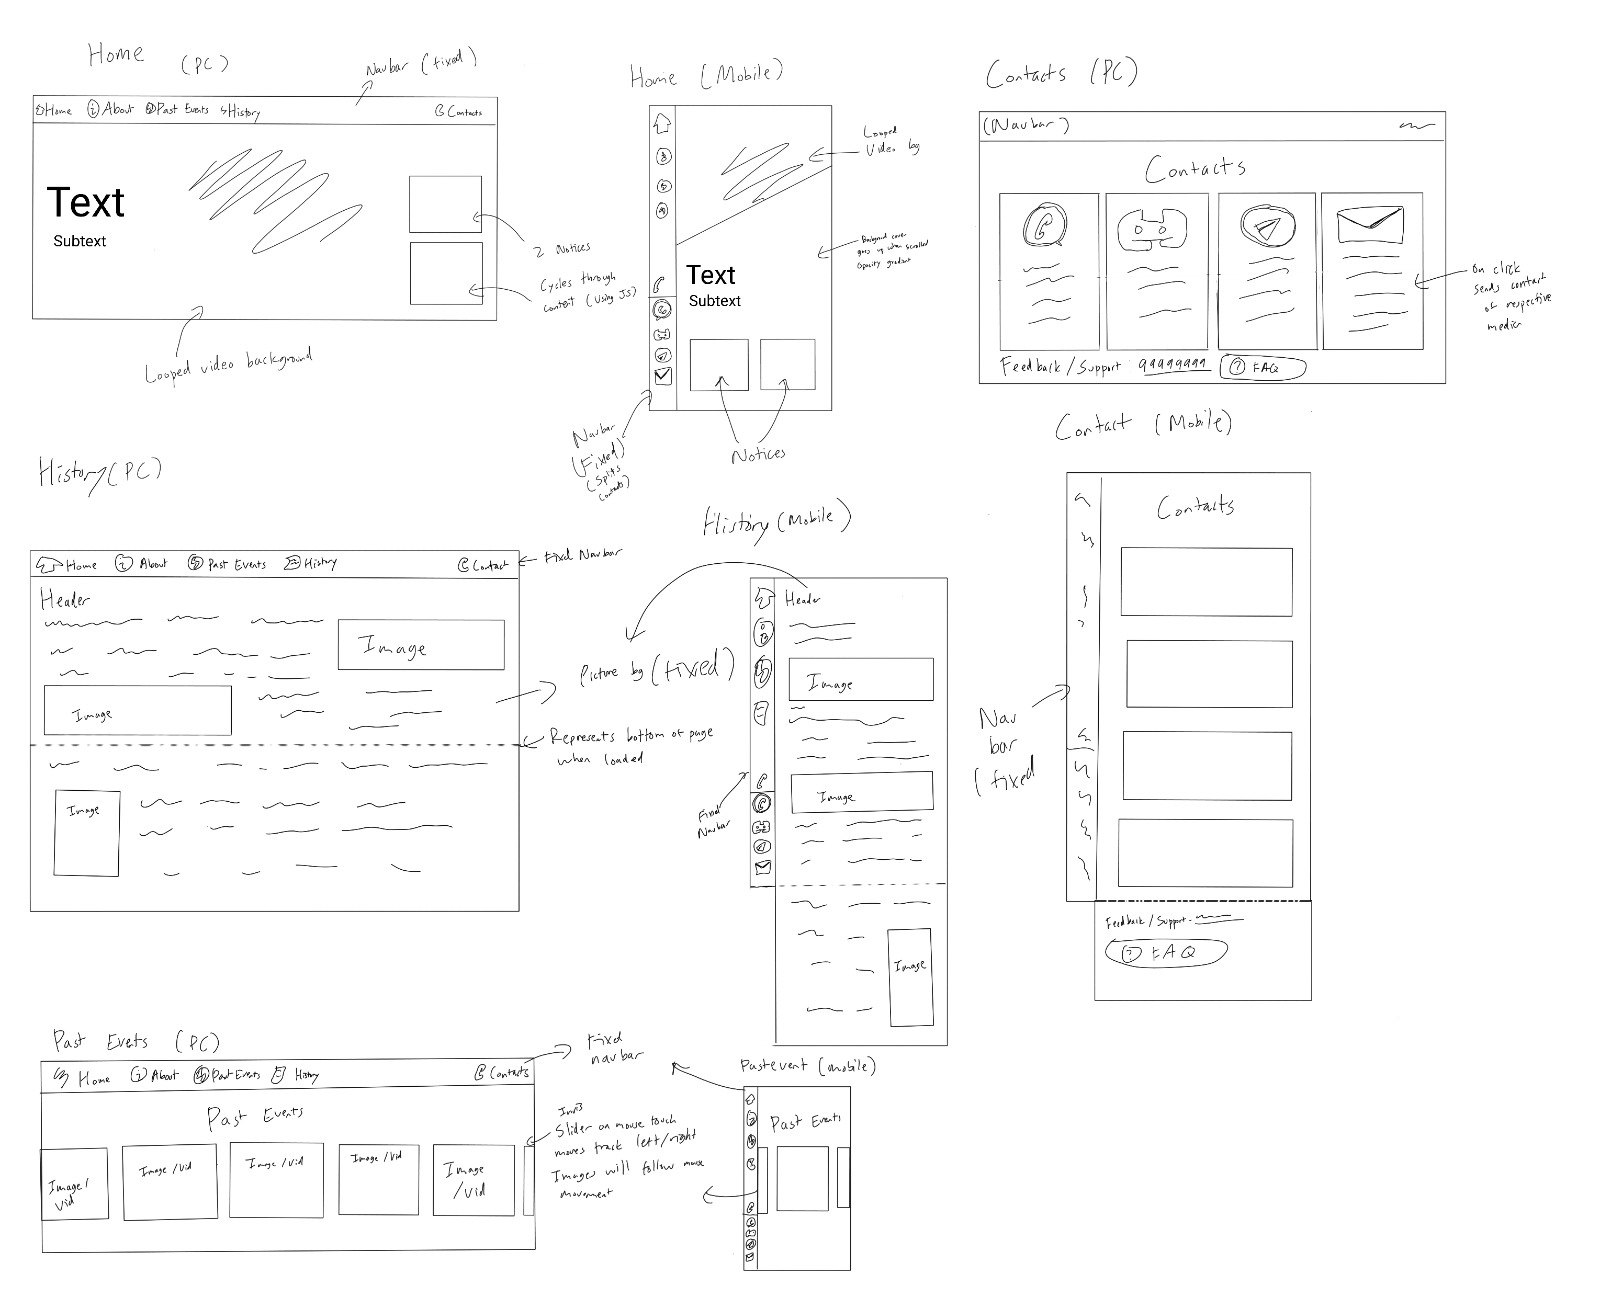 Home (PC)
Navbar (fixed)
Home About Past Events History Contacts
Text
Subtext
2 Notices
Cycles through
content (Using JS)
Looped video background
Home (Mobile)
Looped
Video bg
Background cover
goes up when scrolled
Opacity gradient
Text
Subtext
Navbar
(Fixed)
(Splits
Contacts)
Notices
Contacts (PC)
(Navbar)
Contacts
On click
sends contact
of respective
media
Feedback/Support 99999999 ? FAQ
Contact (Mobile)
Contacts
Nav
bar
(fixed
Feedback/Support-
? FAQ
History (PC)
Home i About Past Events History Contact
Fixed Navbar
Header
Image
Image
Picture bg (fixed)
Represents bottom of page
when loaded
Image
History (Mobile)
Header
Image
Image
Fixed
Navbar
Image
Past Events (PC)
Fixed
navbar
Home i About Past Events History Contacts
Past Events
Image/
Vid
Image/Vid
Image/Vid
Image/Vid
Image
/Vid
Slider on mouse touch
moves track left/right
Images will follow mouse
movement
Past event (mobile)
Past Events